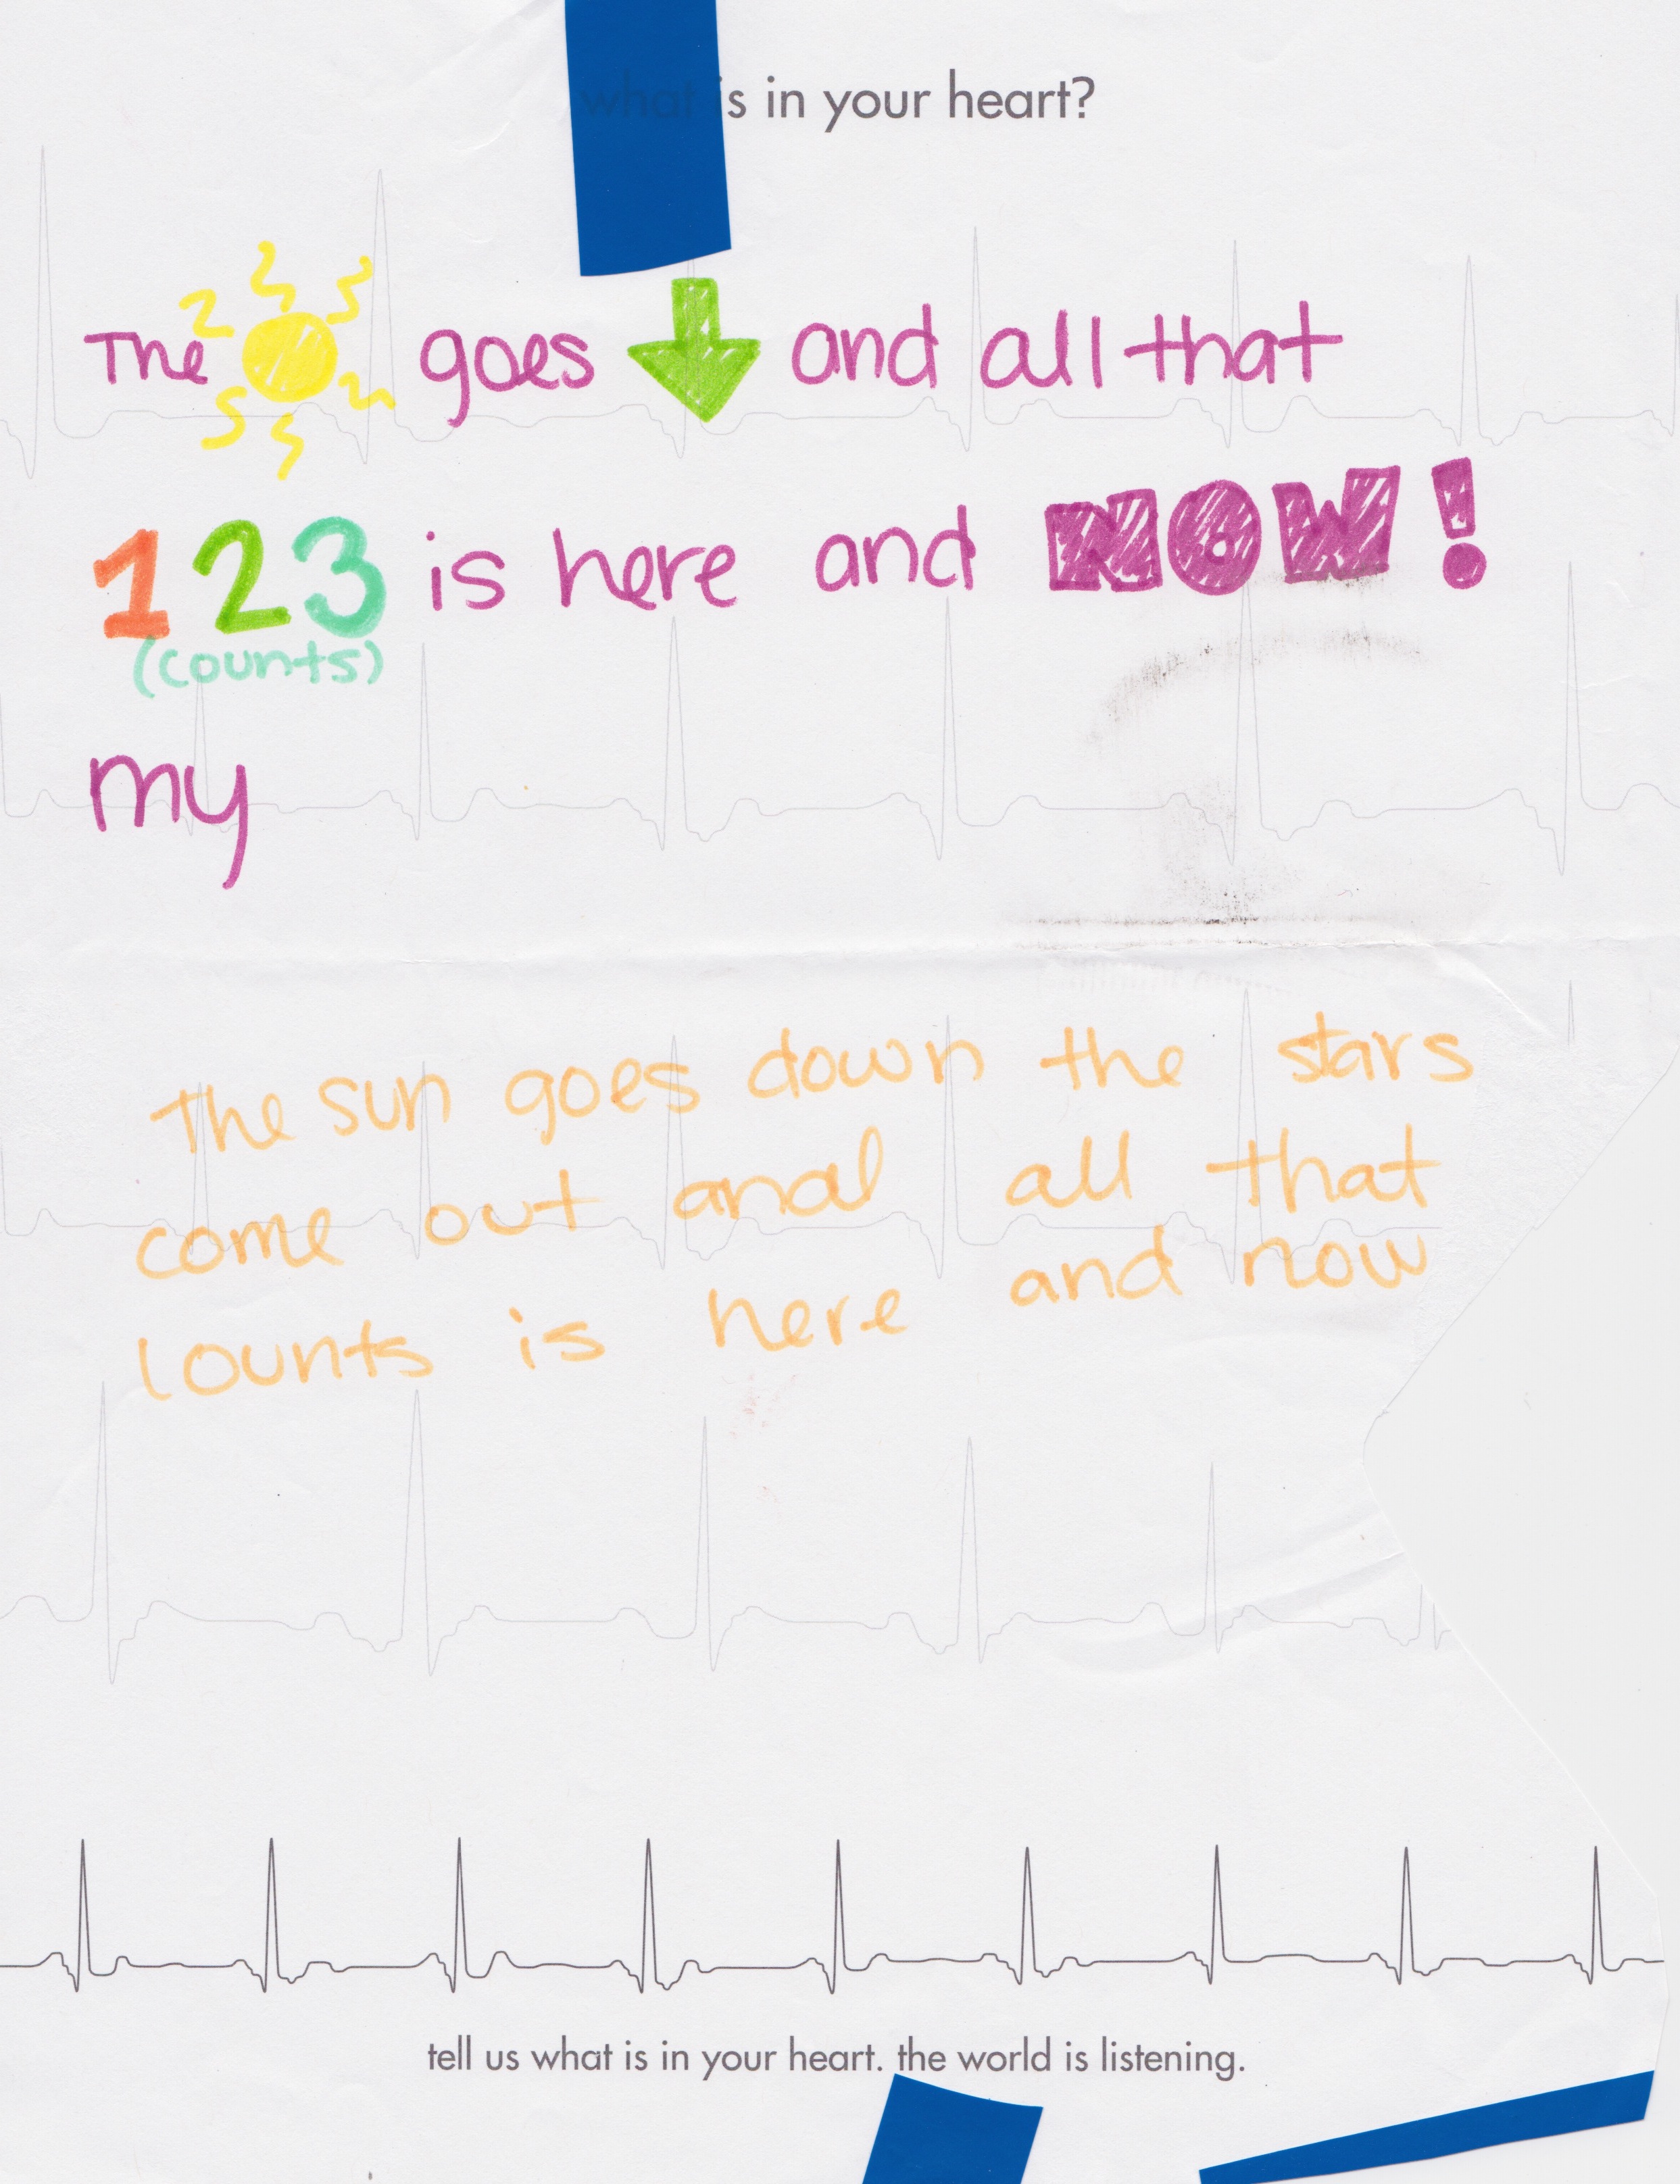 what is in your heart?
The goes and all that
123 is here and NOW!
(counts)
my
The sun goes down the stars
come out and all that
counts is here and now
tell us what is in your heart. the world is listening.